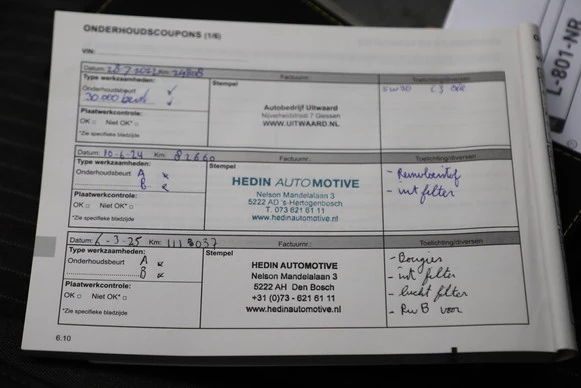 ONDERHOUDSCOUPONS (1/6)
VIN:
Datum: Km: Factuurnr.: Toelichting/diversen
Type werkzaamheden: Stempel
Onderhoudsbeurt ✓
30.000 beurt ✓
Autobedrijf Uitwaard
Nijverheidstraat 7 Gassen
WWW.UITWAARD.NL
Plaatwerkcontrole:
OK □ Niet OK* □
*Zie specifieke bladzijde
Datum: 10-6-24 Km: 82660 Factuurnr.: Toelichting/diversen
Type werkzaamheden: Stempel
Onderhoudsbeurt A
B
HEDIN AUTOMOTIVE
Nelson Mandelalaan 3
5222 AD 's-Hertogenbosch
T. 073 621 61 11
www.hedinautomotive.nl
- Remvloeistof
- int filter
Plaatwerkcontrole:
OK □ Niet OK* □
*Zie specifieke bladzijde
Datum: 6-3-25 Km: Factuurnr.: Toelichting/diversen
Type werkzaamheden: Stempel
Onderhoudsbeurt A
B
HEDIN AUTOMOTIVE
Nelson Mandelalaan 3
5222 AH Den Bosch
+31 (0)73 - 621 61 11
www.hedinautomotive.nl
- Bougies
- int filter
- lucht filter
- RuB voor
Plaatwerkcontrole:
OK □ Niet OK* □
*Zie specifieke bladzijde
6.10
L-801-NP